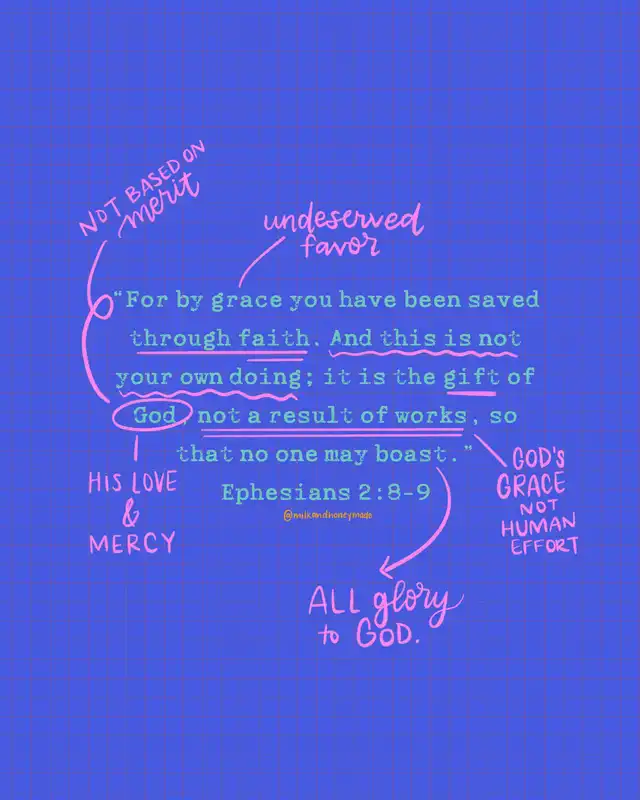 NOT BASED ON
merit
undeserved
favor
“For by grace you have been saved
through faith. And this is not
your own doing; it is the gift of
God, not a result of works, so
that no one may boast.”
Ephesians 2:8-9
@milkandhoneymade
HIS LOVE
&
MERCY
GOD'S
GRACE
NOT
HUMAN
EFFORT
ALL glory
to GOD.